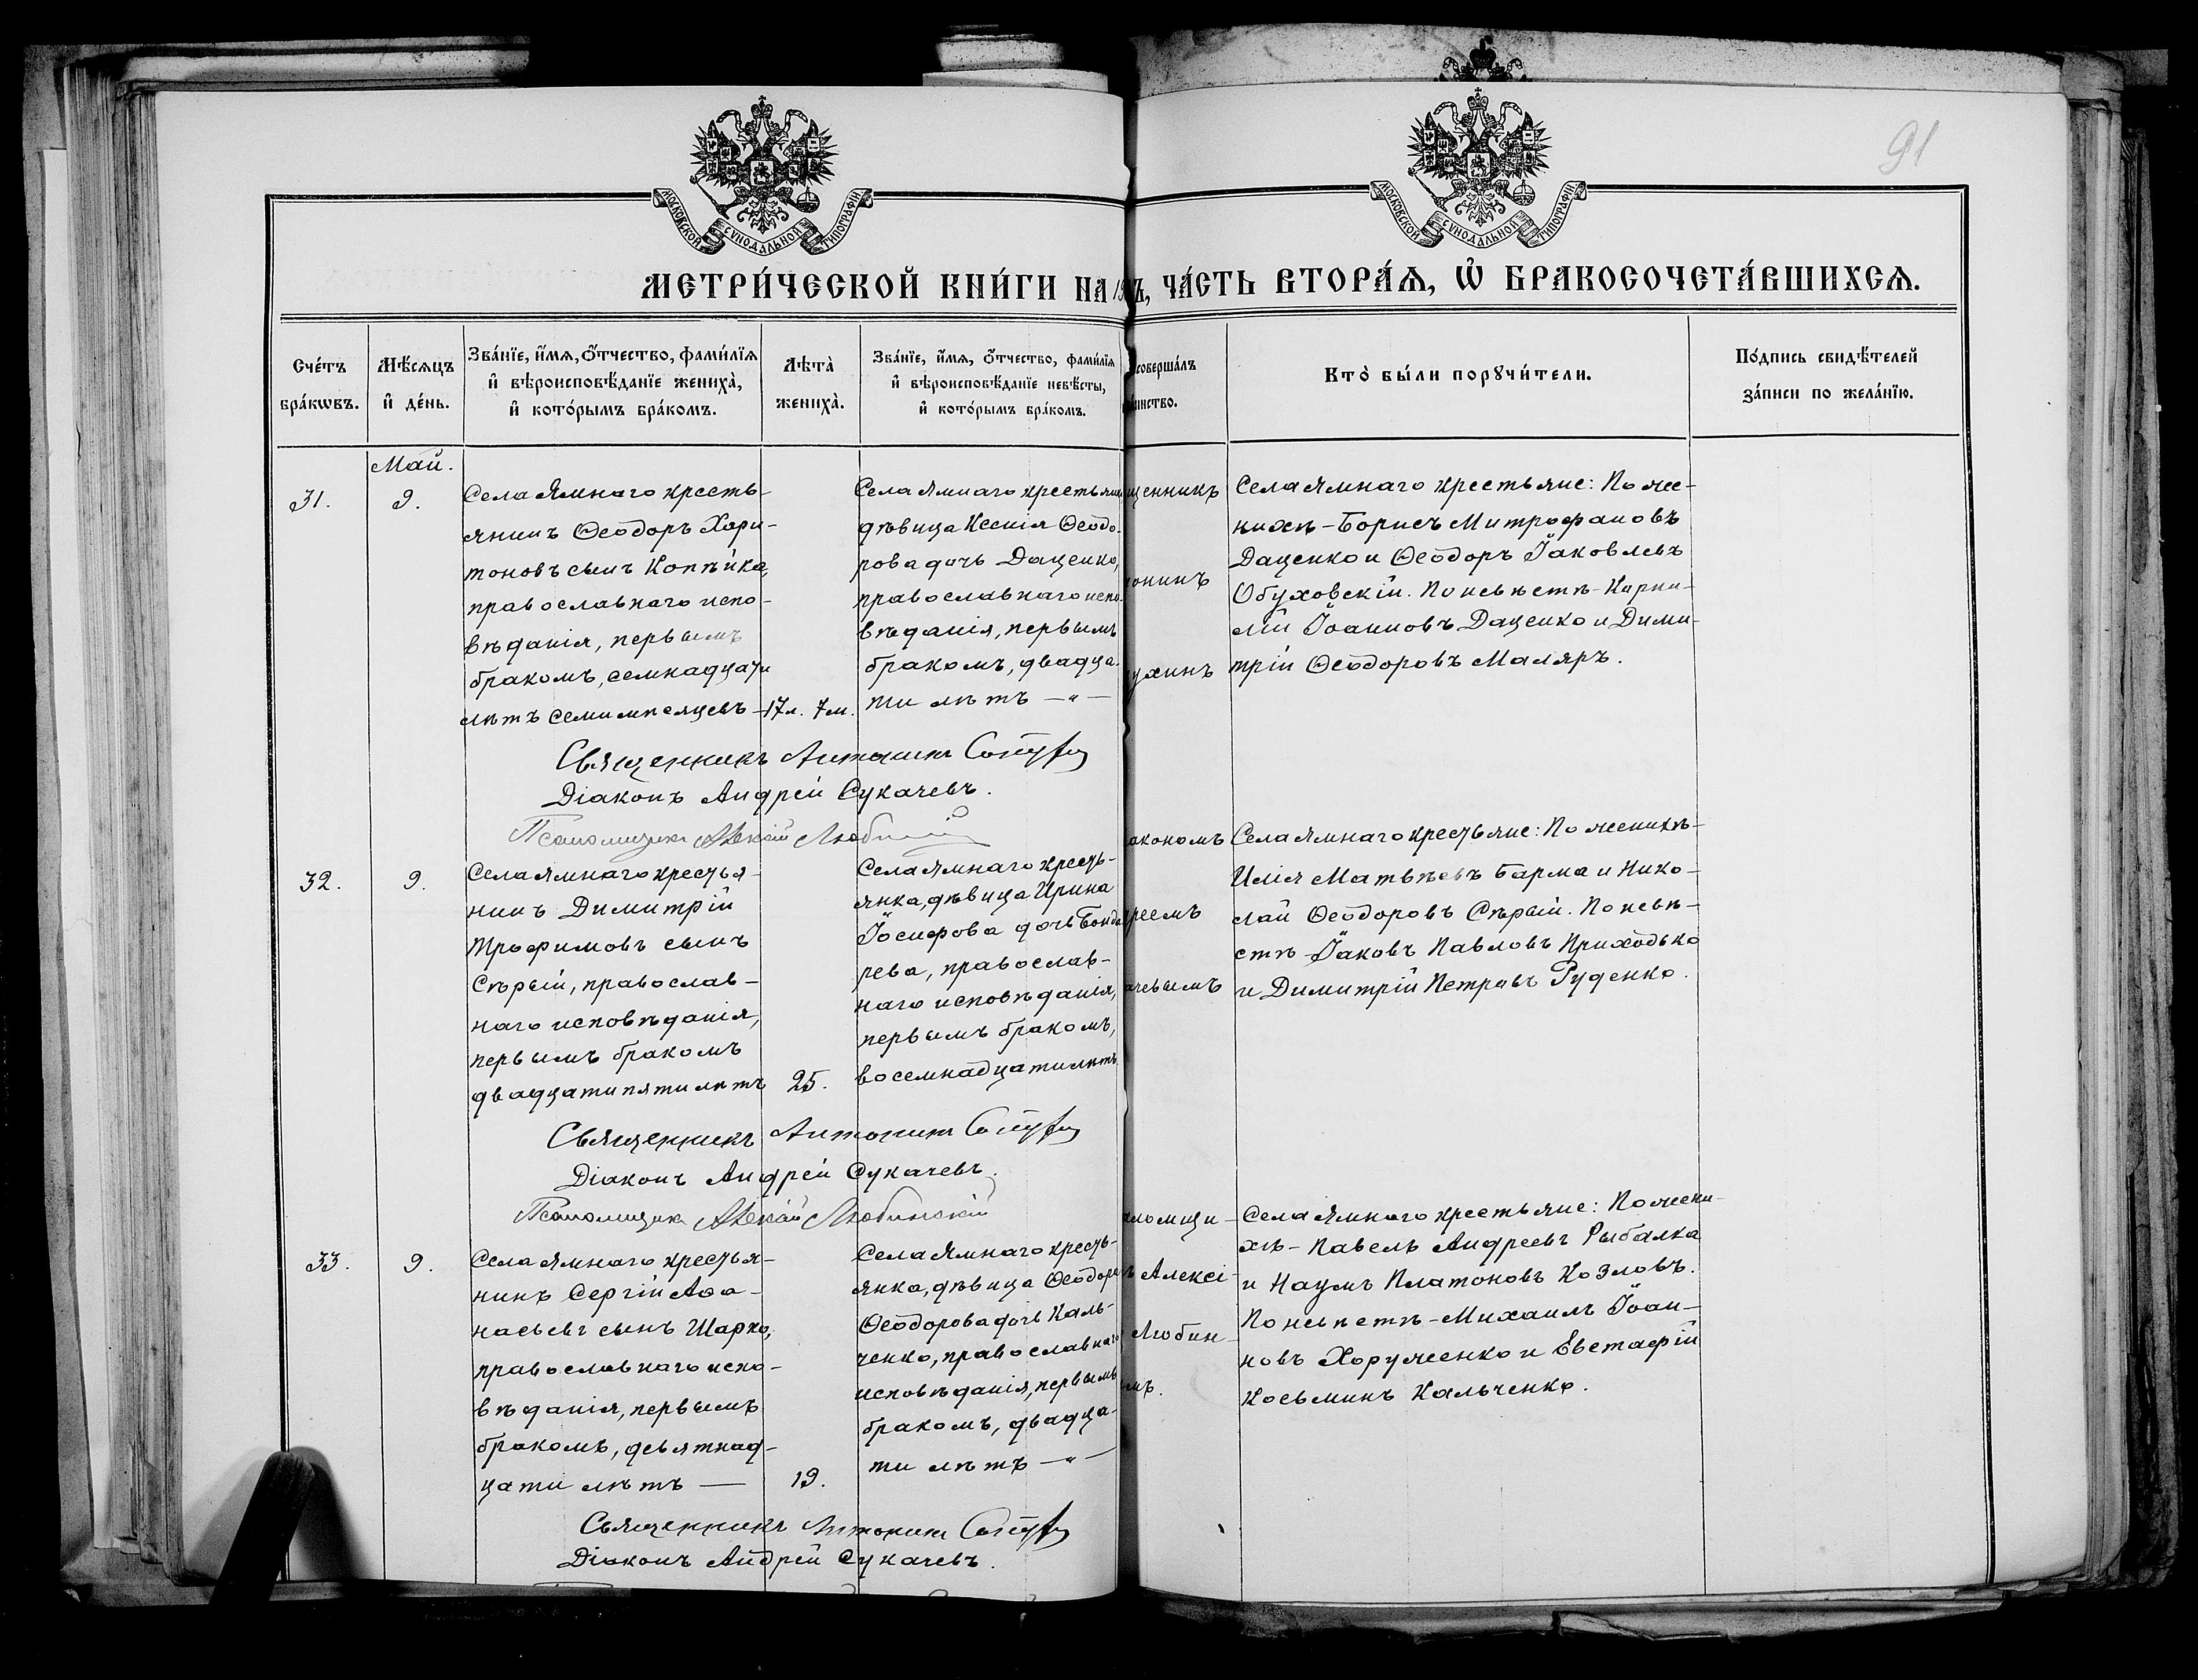 91
МОСКОВСКОЙ СѴНОДАЛЬНОЙ ТИПОГРАФІИ
МОСКОВСКОЙ СѴНОДАЛЬНОЙ ТИПОГРАФІИ
МЕТРИ́ЧЕСКОЙ КНИ́ГИ НА 19 Ъ, ЧА́СТЬ ВТОРА́Ѧ, Ѡ҆ БРАКОСОЧЕТА́ВШИХСѦ.
Сче́тъ
бра́кѡвъ.
Мѣ́сѧцъ
и҆ де́нь.
Зва́нїе, и҆́мѧ, ѻ҆́тчество, фами́лїѧ
и҆ вѣроисповѣ́данїе жениха̀,
и҆ кото́рымъ бра́комъ.
Лѣта̀
жениха̀.
Зва́нїе, и҆́мѧ, ѻ҆́тчество, фами́лїѧ
и҆ вѣроисповѣ́данїе невѣ́сты,
и҆ кото́рымъ бра́комъ.
соверша́лъ
инство.
Кто̀ бы́ли порꙋчи́тели.
По́дпись свидѣ́телей
за́писи по жела́нїю.
Май.
31.
9.
Села Ямнаго кресть-
янинъ Ѳеодоръ Хари-
тоновъ сынъ Копѣйка,
православнаго испо-
вѣданія, первымъ
бракомъ, семнадцати
лѣтъ семи мѣсяцевъ —
17 л. 7 м.
Села Ямнаго крестьянка
дѣвица Ксенія Ѳеодо-
рова дочь Даценко,
православнаго испо-
вѣданія, первымъ
бракомъ, двадца-
ти лѣтъ — " —
щенникъ
тонинъ
ухинъ
Села Ямнаго крестьяне: По же-
нихѣ - Борисъ Митрофановъ
Даценко и Ѳеодоръ Іаковлевъ
Обуховскій. По невѣстѣ - Корни-
лій Іоанновъ Даценко и Дими-
трій Ѳеодоровъ Маляръ.
Священникъ Антонинъ
Діаконъ Андрей Сукачевъ.
Псаломщикъ Алексій Любинскій
32.
9.
Села Ямнаго крестья-
нинъ Димитрій
Трофимовъ сынъ
Сѣрый, православ-
наго исповѣданія,
первымъ бракомъ
двадцати пяти лѣтъ
25.
Села Ямнаго кресть-
янка, дѣвица Ирина
Іосифова дочь Бонда-
рева, православ-
наго исповѣданія,
первымъ бракомъ,
восемнадцати лѣтъ
акономъ
реемъ
ачевымъ
Села Ямнаго крестьяне: По женихѣ -
Илія Матвѣевъ Барма и Нико-
лай Ѳеодоровъ Сѣрый. По невѣ-
стѣ - Іаковъ Павловъ Приходько
и Димитрій Петровъ Руденко.
Священникъ Антонинъ
Діаконъ Андрей Сукачевъ.
Псаломщикъ Алексій Любинскій
33.
9.
Села Ямнаго крестья-
нинъ Сергій Аѳа-
насьевъ сынъ Шарко,
православнаго испо-
вѣданія, первымъ
бракомъ, девятнад-
цати лѣтъ —
19.
Села Ямнаго кресть-
янка, дѣвица Ѳеодора
Ѳеодорова дочь Каль-
ченко, православнаго
исповѣданія, первымъ
бракомъ, двадца-
ти лѣтъ — " —
ломщи-
ъ Алексі-
Любин-
мъ.
Села Ямнаго крестьяне: По жени-
хѣ - Павелъ Андреевъ Рыбалка
и Наумъ Платоновъ Козловъ.
По невѣстѣ - Михаилъ Іоан-
новъ Хоруженко и Евстафій
Косьминъ Кальченко.
Священникъ Антонинъ
Діаконъ Андрей Сукачевъ.